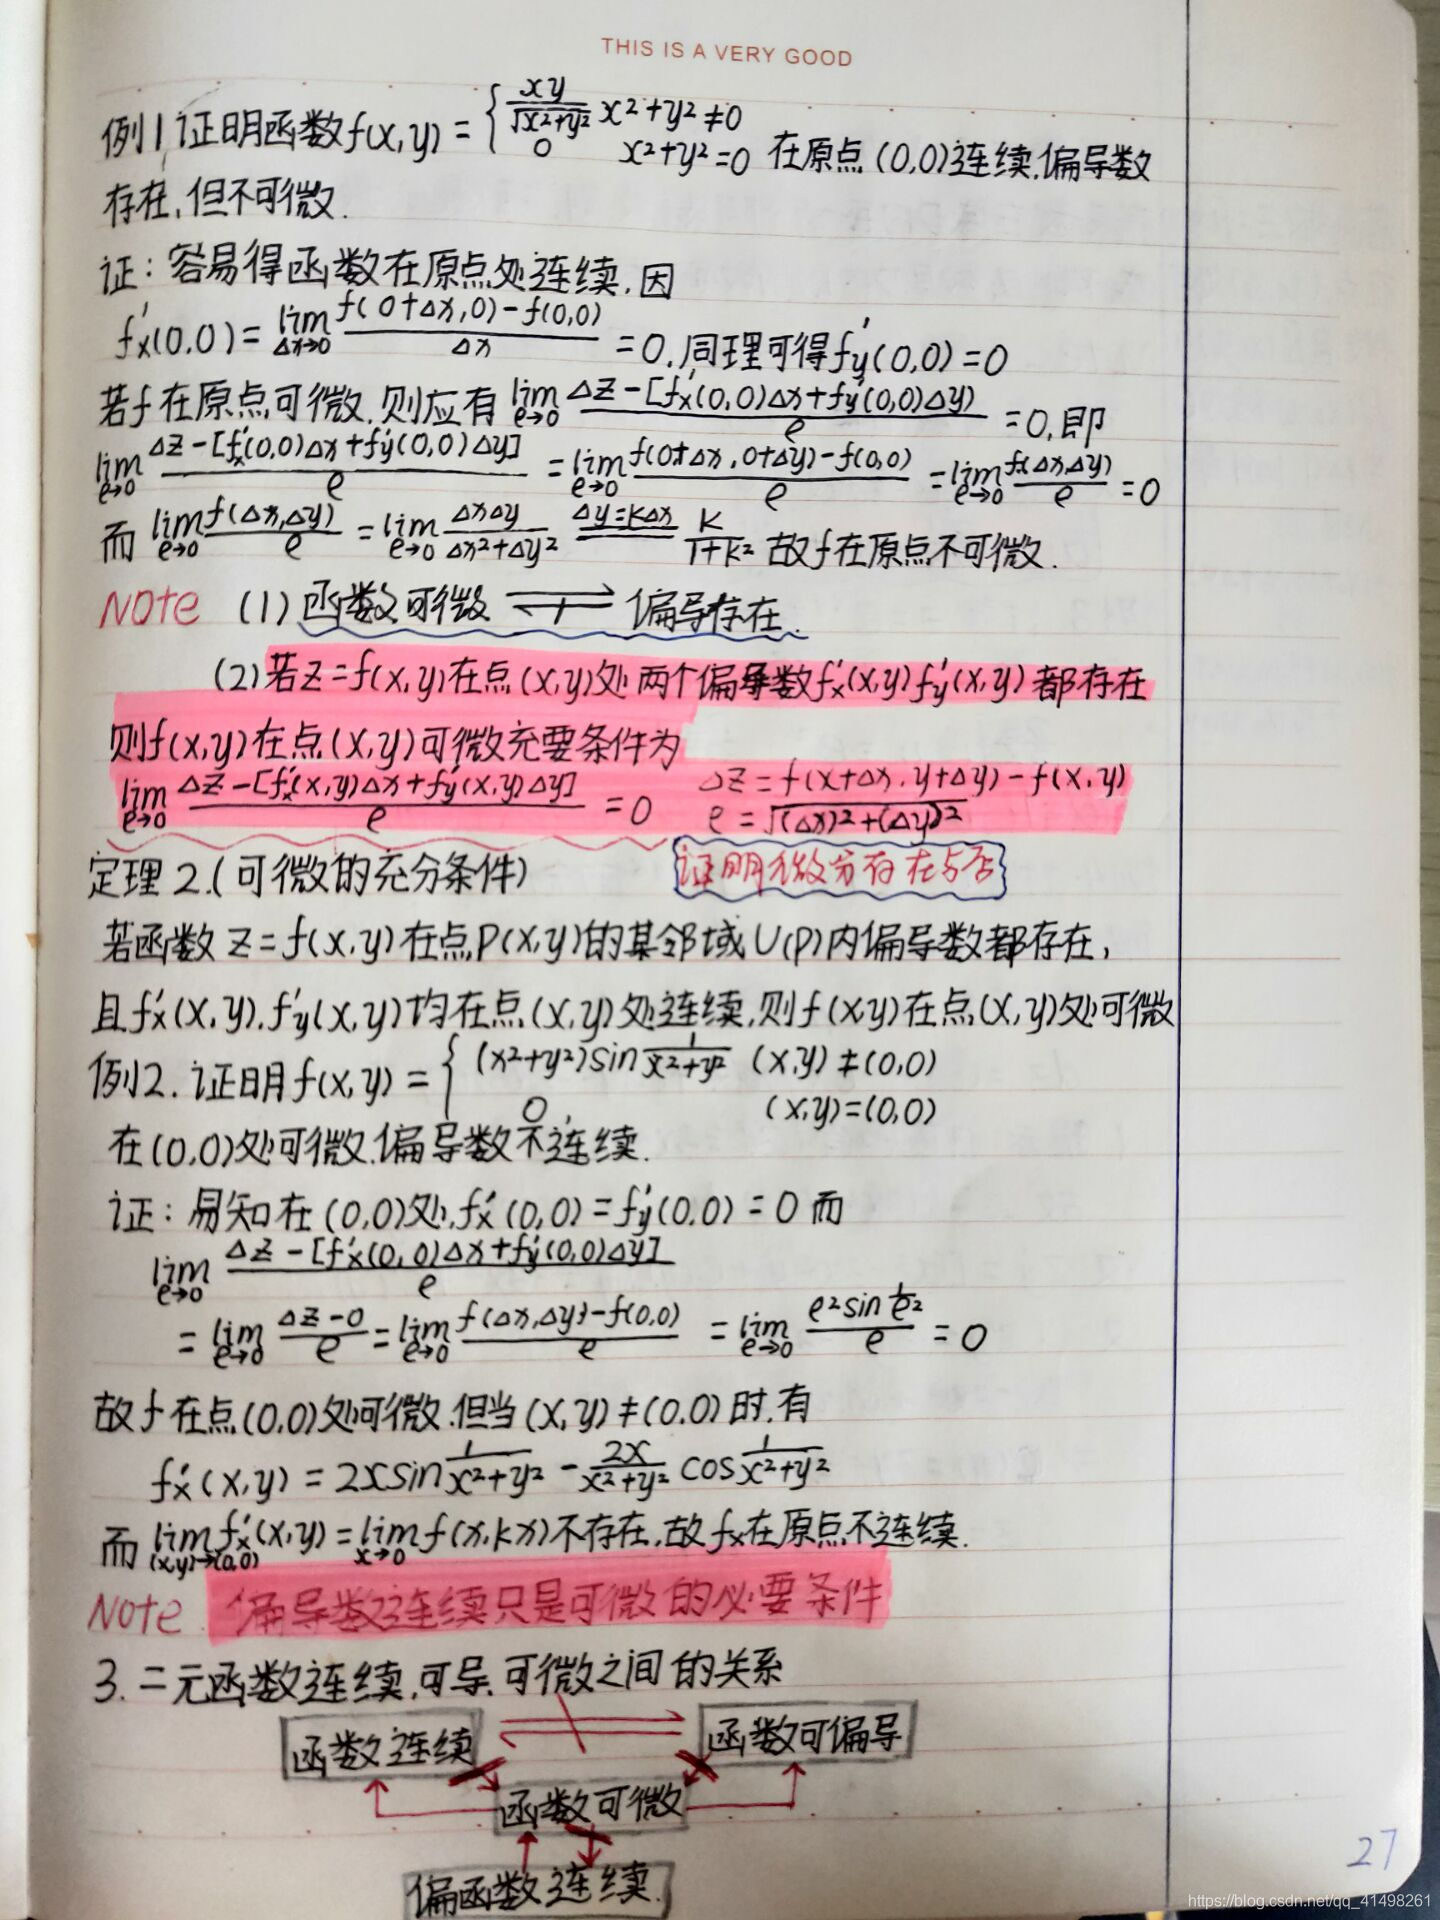 THIS IS A VERY GOOD
例1 证明函数f(x,y) = { xy/√(x²+y²) x²+y²≠0
0 x²+y²=0 在原点(0,0)连续,偏导数
存在,但不可微.
证: 容易得函数在原点处连续,因
f'x(0,0) = lim Δx→0 (f(0+Δx,0)-f(0,0))/Δx = 0, 同理可得f'y(0,0)=0
若f在原点可微,则应有 lim e→0 (Δz-[f'x(0,0)Δx+f'y(0,0)Δy))/e =0, 即
lim e→0 (Δz-[f'x(0,0)Δx+f'y(0,0)Δy])/e = lim e→0 (f(0+Δx,0+Δy)-f(0,0))/e = lim e→0 f(Δx,Δy)/e = 0
而 lim e→0 f(Δx,Δy)/e = lim e→0 ΔxΔy/(Δx²+Δy²) Δy=kΔx == k/(1+k²) 故f在原点不可微.
Note (1) 函数可微 ⇌ 偏导存在.
(2) 若z=f(x,y)在点(x,y)处两个偏导数f'x(x,y)f'y(x,y)都存在
则f(x,y)在点(x,y)可微充要条件为
lim e→0 (Δz-[f'x(x,y)Δx+f'y(x,y)Δy])/e = 0 Δz=f(x+Δx,y+Δy)-f(x,y)
e=√((Δx)²+(Δy)²)
定理2.(可微的充分条件) 证明微分存在与否
若函数z=f(x,y)在点P(x,y)的某邻域U(P)内偏导数都存在,
且f'x(x,y),f'y(x,y)均在点(x,y)处连续,则f(x,y)在点(x,y)处可微
例2. 证明f(x,y) = { (x²+y²)sin 1/(x²+y²) (x,y)≠(0,0)
0, (x,y)=(0,0)
在(0,0)处可微,偏导数不连续.
证: 易知在(0,0)处,f'x(0,0)=f'y(0,0)=0 而
lim e→0 (Δz-[f'x(0,0)Δx+f'y(0,0)Δy])/e
= lim e→0 (Δz-0)/e = lim e→0 (f(Δx,Δy)-f(0,0))/e = lim e→0 (e² sin 1/e²)/e = 0
故f在点(0,0)处可微.但当(x,y)≠(0,0)时,有
f'x(x,y) = 2x sin 1/(x²+y²) - 2x/(x²+y²) cos 1/(x²+y²)
而 lim (x,y)→(0,0) f'x(x,y) = lim x→0 f(x,kx)不存在,故fx在原点不连续.
Note 偏导数连续只是可微的必要条件
3. 二元函数连续,可导,可微之间的关系
函数连续 函数可偏导
函数可微
偏函数连续.
27
https://blog.csdn.net/qq_41498261